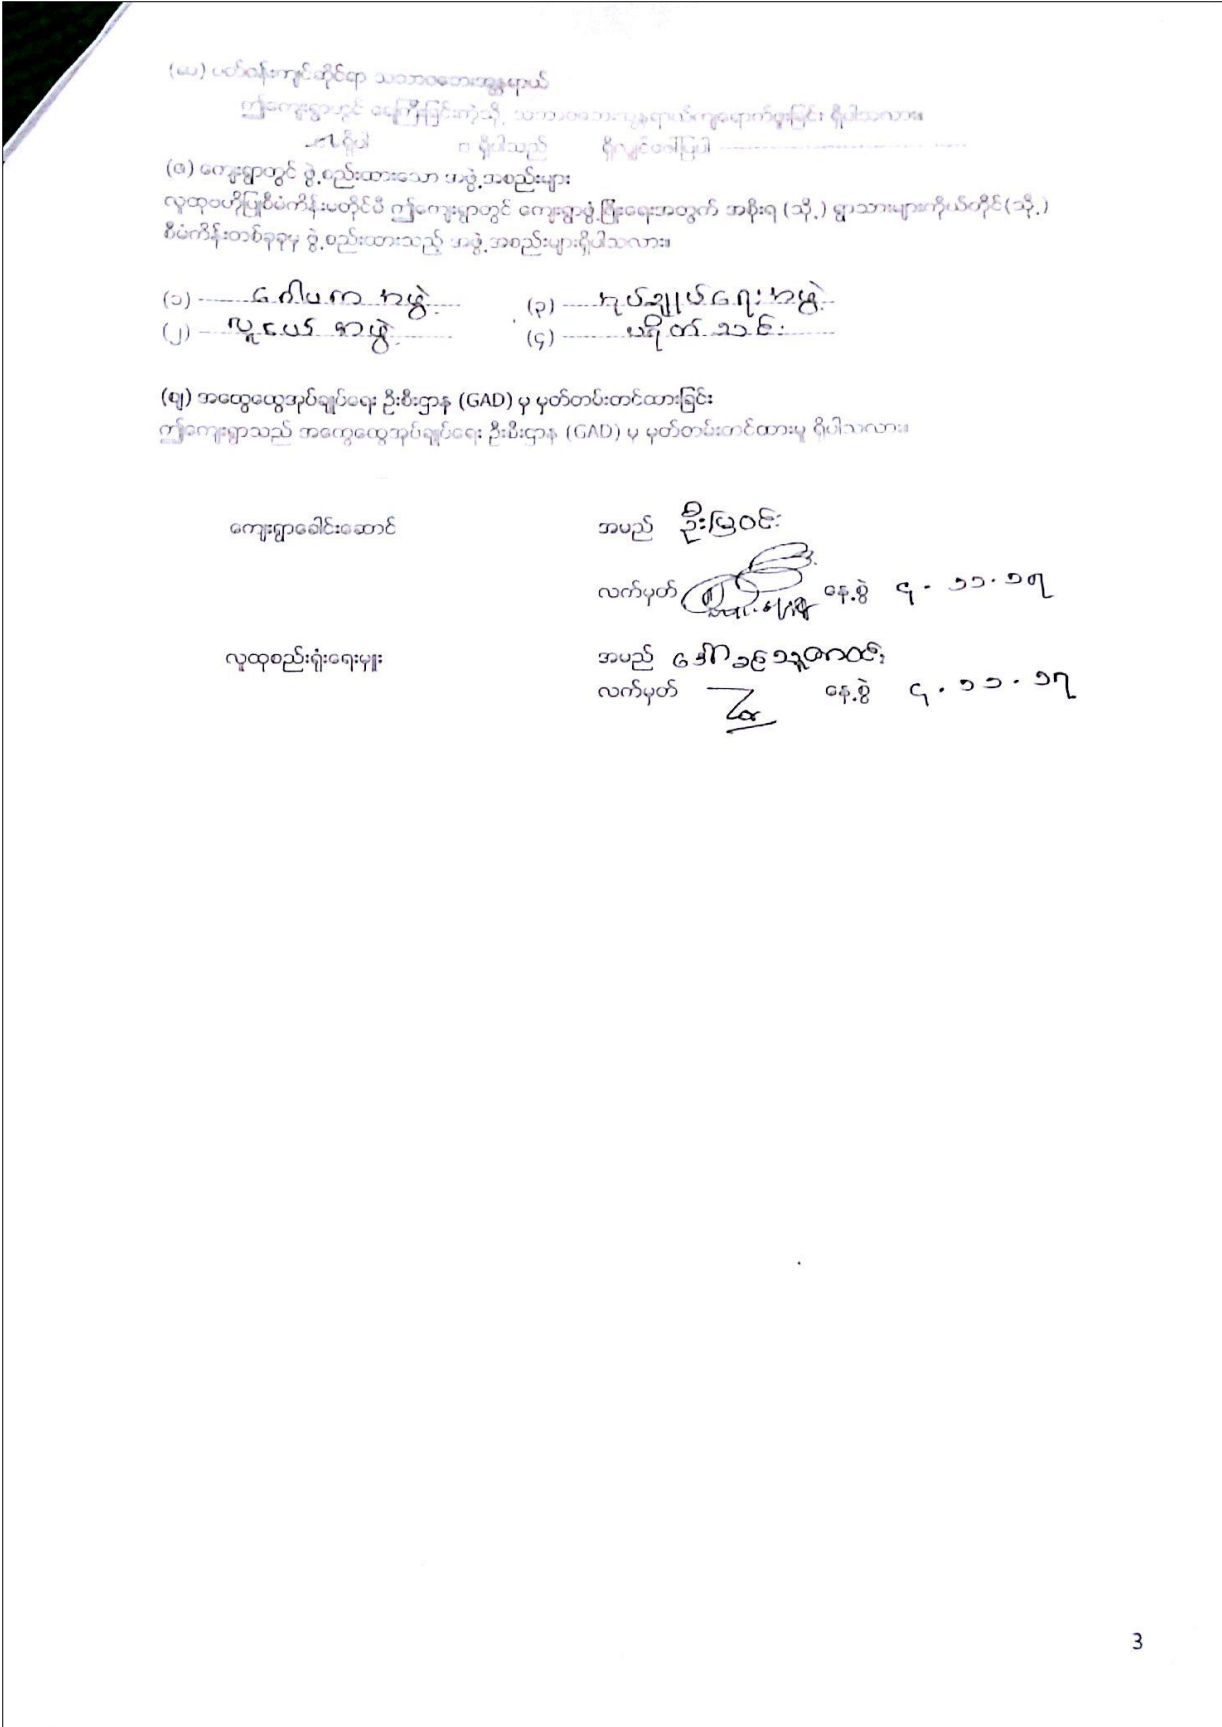 ပတ်ဝန်းကျင်ဆိုင်ရာ သဘာဝဘေးအန္တရာယ်
ဤကျေးရွာတွင် ရေကြီးခြင်းကဲ့သို့ သဘာဝဘေးအန္တရာယ်ကျရောက်ဖူးခြင်း ရှိပါသလား။
မရှိပါ □ ရှိပါသည် ရှိလျှင်ဖေါ်ပြပါ
(ဇ) ကျေးရွာတွင် ဖွဲ့စည်းထားသော အဖွဲ့အစည်းများ
လူထုဗဟိုပြုစီမံကိန်းမတိုင်မီ ဤကျေးရွာတွင် ကျေးရွာဖွံ့ဖြိုးရေးအတွက် အစိုးရ (သို့) ရွာသားများကိုယ်တိုင် (သို့)
စီမံကိန်းတစ်ခုခုမှ ဖွဲ့စည်းထားသည့် အဖွဲ့အစည်းများရှိပါသလား။
(၁) ဂေါပက အဖွဲ့ (၃) အုပ်ချုပ်ရေးအဖွဲ့
(၂) လူငယ် အဖွဲ့ (၄) ပရိတ် အသင်း
(ဈ) အထွေထွေအုပ်ချုပ်ရေး ဦးစီးဌာန (GAD) မှ မှတ်တမ်းတင်ထားခြင်း
ဤကျေးရွာသည် အထွေထွေအုပ်ချုပ်ရေး ဦးစီးဌာန (GAD) မှ မှတ်တမ်းတင်ထားမှု ရှိပါသလား။
ကျေးရွာခေါင်းဆောင် အမည် ဦးမြဝင်း
လက်မှတ် နေ့စွဲ ၄.၁၁.၁၇
လူထုစည်းရုံးရေးမှူး အမည် ဒေါ်
လက်မှတ် နေ့စွဲ ၄.၁၁.၁၇
3